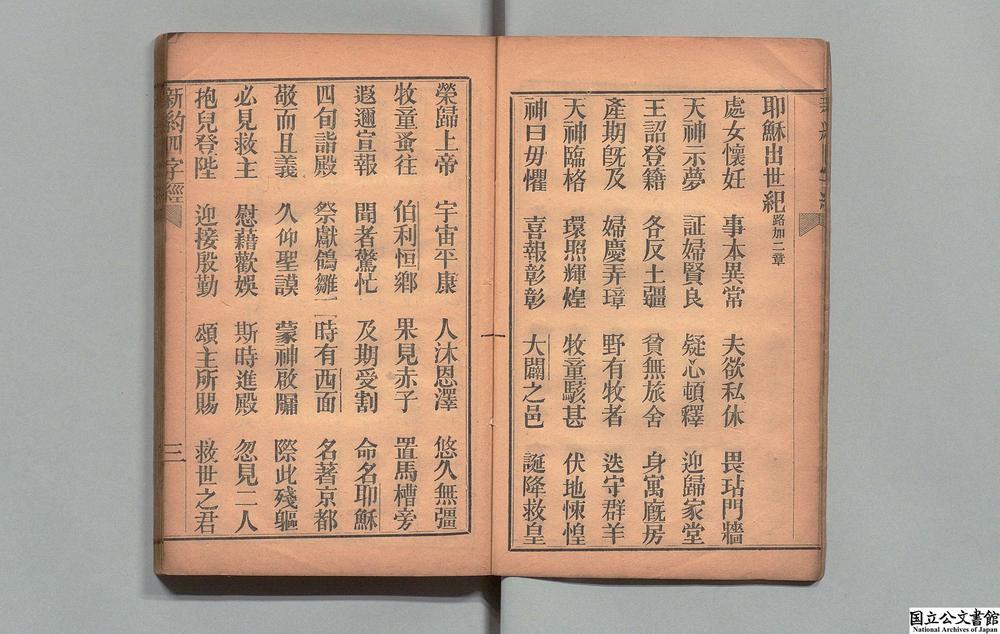 耶穌出世紀 路加二章
處女懷妊 事本異常 夫欲私休 畏玷門牆
天神示夢 証婦賢良 疑心頓釋 迎歸家堂
王詔登籍 各反土疆 貧無旅舍 身寓廐房
產期旣及 婦慶弄璋 野有牧者 迭守群羊
天神臨格 環照輝煌 牧童駭甚 伏地悚惶
神曰毋懼 喜報彰彰 大闢之邑 誕降救皇
榮歸上帝 宇宙平康 人沐恩澤 悠久無疆
牧童蚤往 伯利恒鄉 果見赤子 置馬槽旁
遐邇宣報 聞者驚忙 及期受割 命名耶穌
四旬詣殿 祭獻鴿雛 時有西面 名著京都
敬而且義 久仰聖謨 蒙神啟牖 際此殘軀
必見救主 慰藉歡娛 斯時進殿 忽見二人
抱兒登陛 迎接殷勤 頌主所賜 救世之君
新約四字經
三
国立公文書館
National Archives of Japan